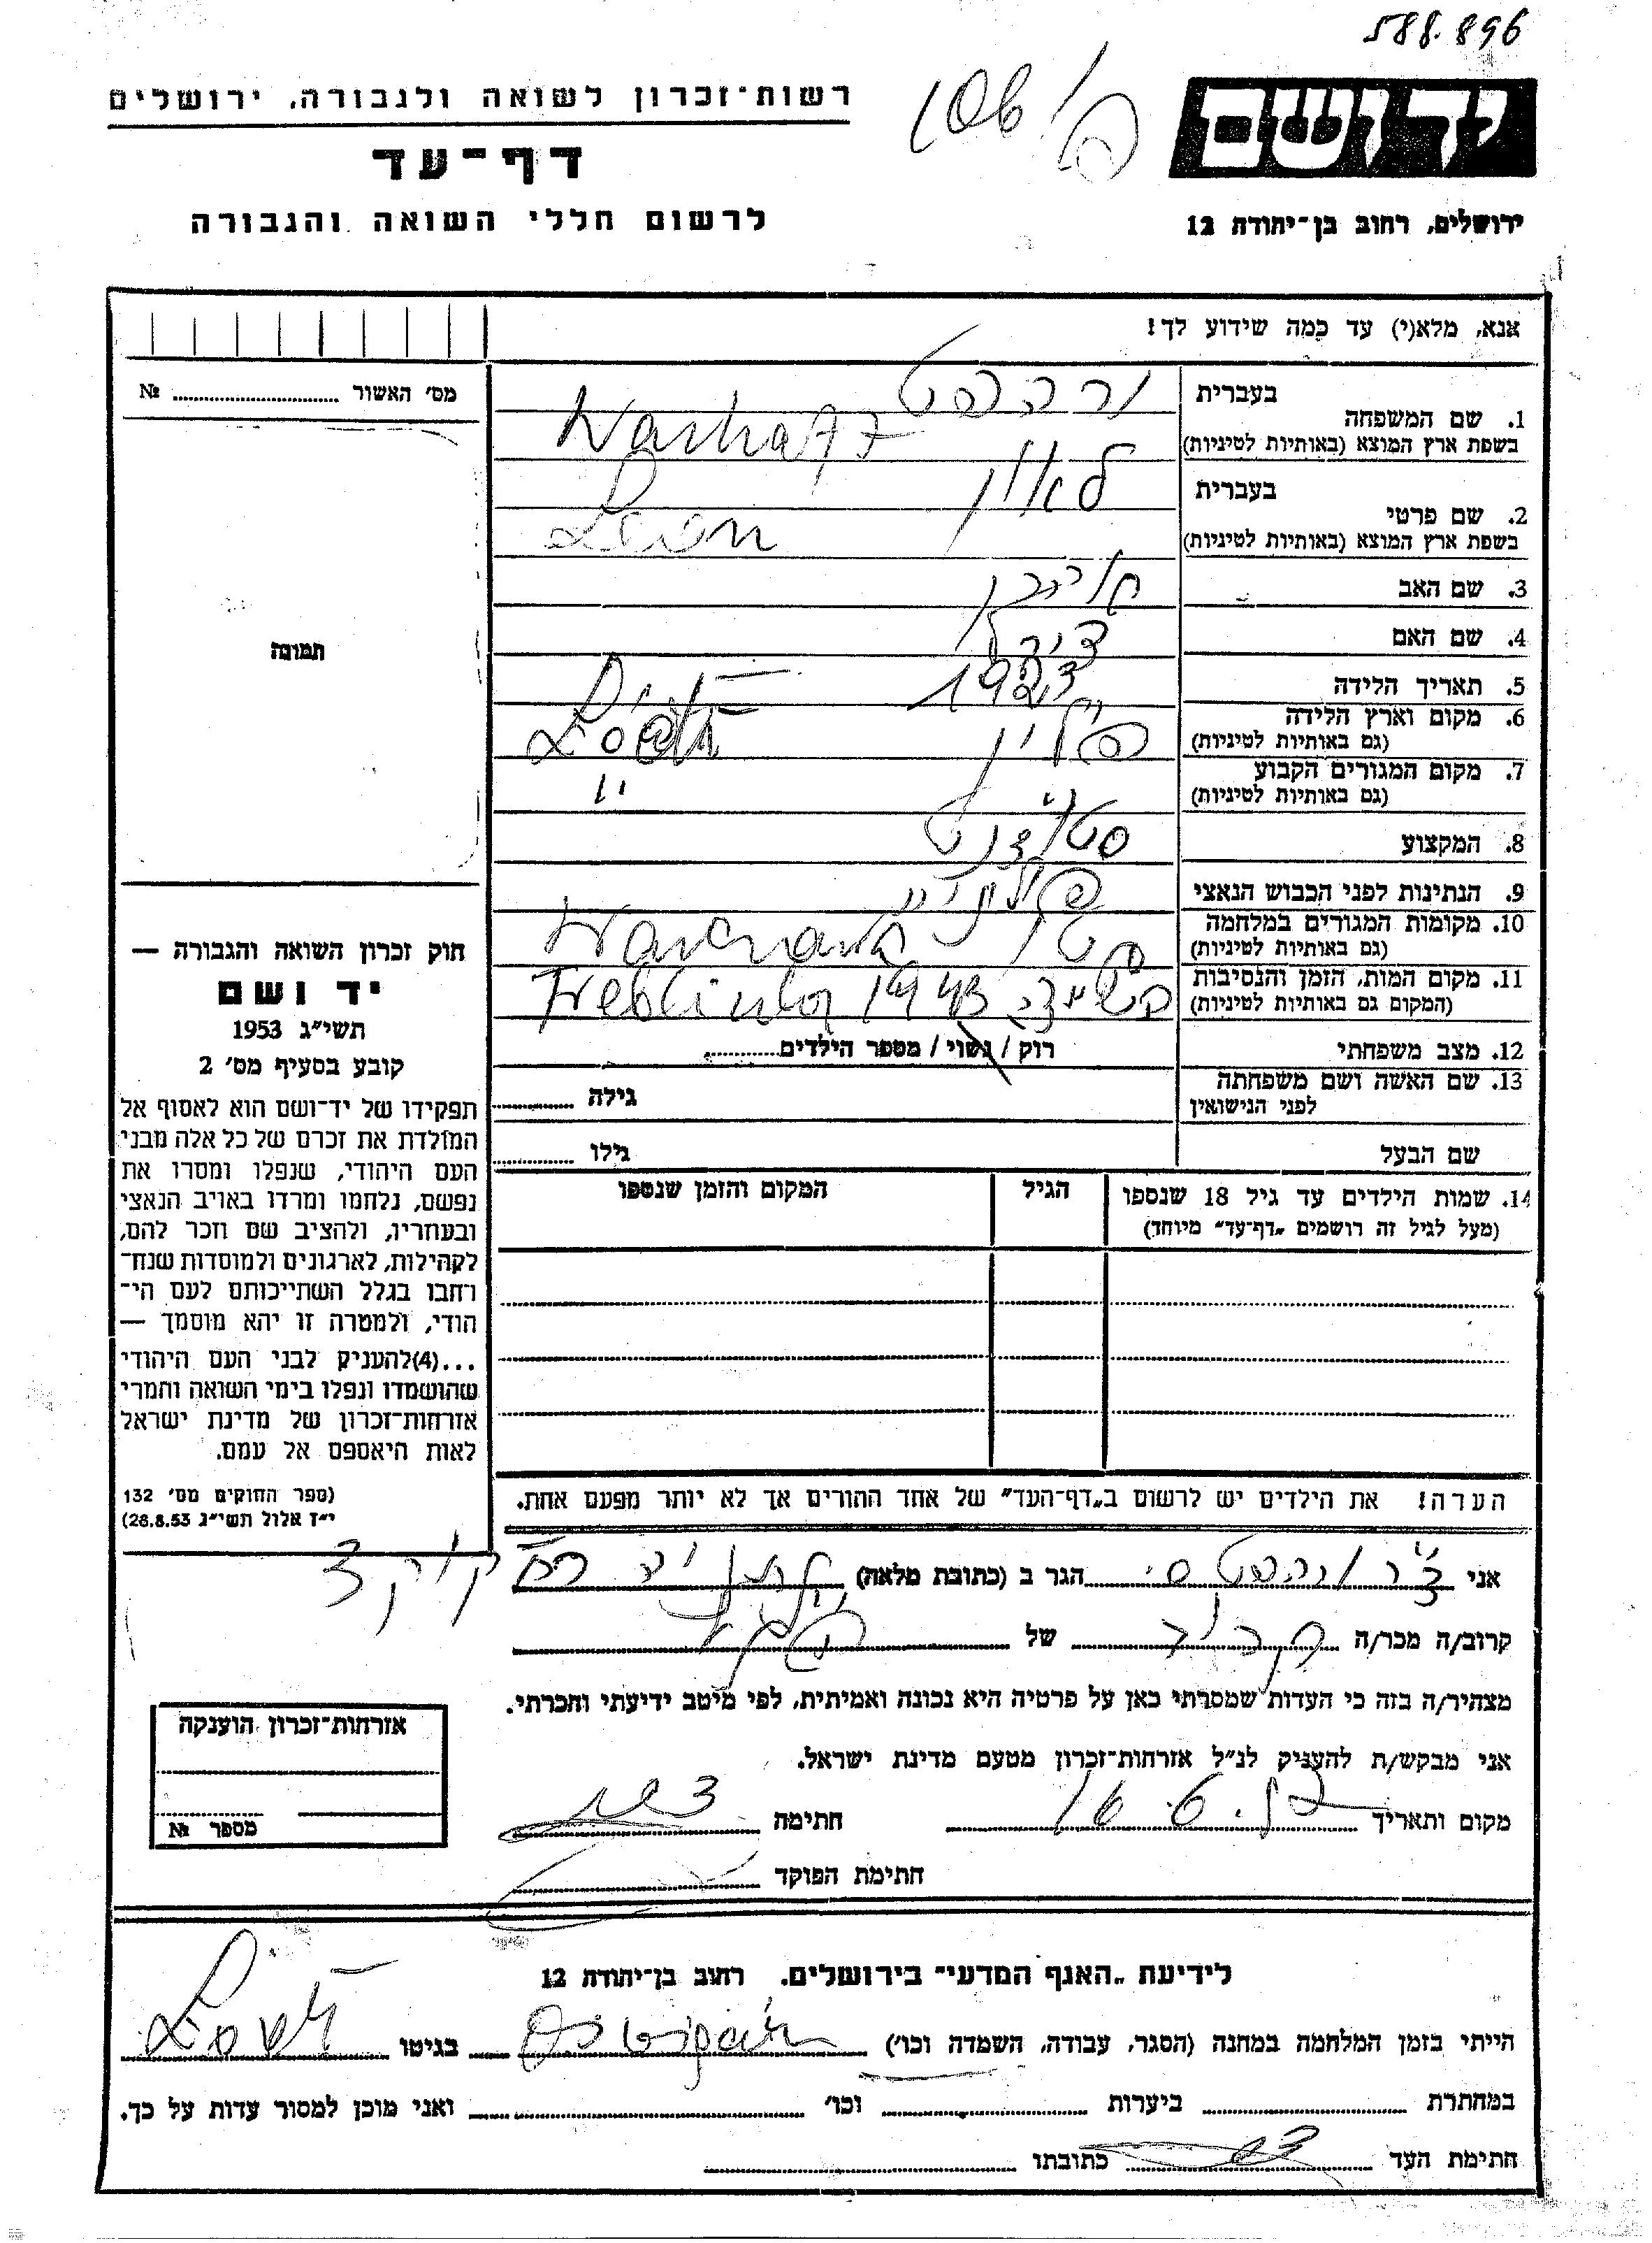 588.896
יד ושם
רשות־זכרון לשואה ולגבורה, ירושלים
דף־עד
לרשום חללי השואה והגבורה
ירושלים, רחוב בן־יהודה 12
אנא, מלא(י) עד כמה שידוע לך!
מס׳ האשור № ....
1. שם המשפחה בעברית ורהפט
בשפת ארץ המוצא (באותיות לטיניות) Warhaft
2. שם פרטי בעברית לאון
בשפת ארץ המוצא (באותיות לטיניות) Leon
3. שם האב
4. שם האם
5. תאריך הלידה 1923
6. מקום וארץ הלידה פולין Łódź
(גם באותיות לטיניות)
7. מקום המגורים הקבוע "
(גם באותיות לטיניות)
8. המקצוע סטודנט
9. הנתינות לפני הכבוש הנאצי
10. מקומות המגורים במלחמה
(גם באותיות לטיניות)
11. מקום המות, הזמן והנסיבות 1943 Treblinka
(המקום גם באותיות לטיניות)
12. מצב משפחתי רוק / נשוי / מספר הילדים....
13. שם האשה ושם משפחתה גילה ....
לפני הנישואין
שם הבעל גילו ....
14. שמות הילדים עד גיל 18 שנספו הגיל המקום והזמן שנספו
(מעל לגיל זה רושמים „דף־עד" מיוחד)
תמונה
חוק זכרון השואה והגבורה —
יד ושם
תשי״ג 1953
קובע בסעיף מס׳ 2
תפקידו של יד־ושם הוא לאסוף אל
המולדת את זכרם של כל אלה מבני
העם היהודי, שנפלו ומסרו את
נפשם, נלחמו ומרדו באויב הנאצי
ובעוזריו, ולהציב שם וזכר להם,
לקהילות, לארגונים ולמוסדות שנח־
רבו בגלל השתייכותם לעם הי־
הודי, ולמטרה זו יהא מוסמך —
...(4)להעניק לבני העם היהודי
שהושמדו ונפלו בימי השואה והמרי
אזרחות־זכרון של מדינת ישראל
לאות היאספם אל עמם.
(ספר החוקים מס׳ 132
י״ז אלול תשי״ג 28.8.53)
הערה! את הילדים יש לרשום ב„דף־העד" של אחד ההורים אך לא יותר מפעם אחת.
אני הגר ב (כתובת מלאה)
קרוב/ה מכר/ה של
מצהיר/ה בזה כי העדות שמסרתי כאן על פרטיה היא נכונה ואמיתית, לפי מיטב ידיעתי והכרתי.
אני מבקש/ת להעניק לנ״ל אזרחות־זכרון מטעם מדינת ישראל.
מקום ותאריך חתימה
חתימת הפוקד
אזרחות־זכרון הוענקה
מספר №
לידיעת „האגף המדעי" בירושלים, רחוב בן־יהודה 12
הייתי בזמן המלחמה במחנה (הסגר, עבודה, השמדה וכו׳) בגיטו Łódź
במחתרת .... ביערות .... וכו׳ .... ואני מוכן למסור עדות על כך.
חתימת העד כתובתו ....